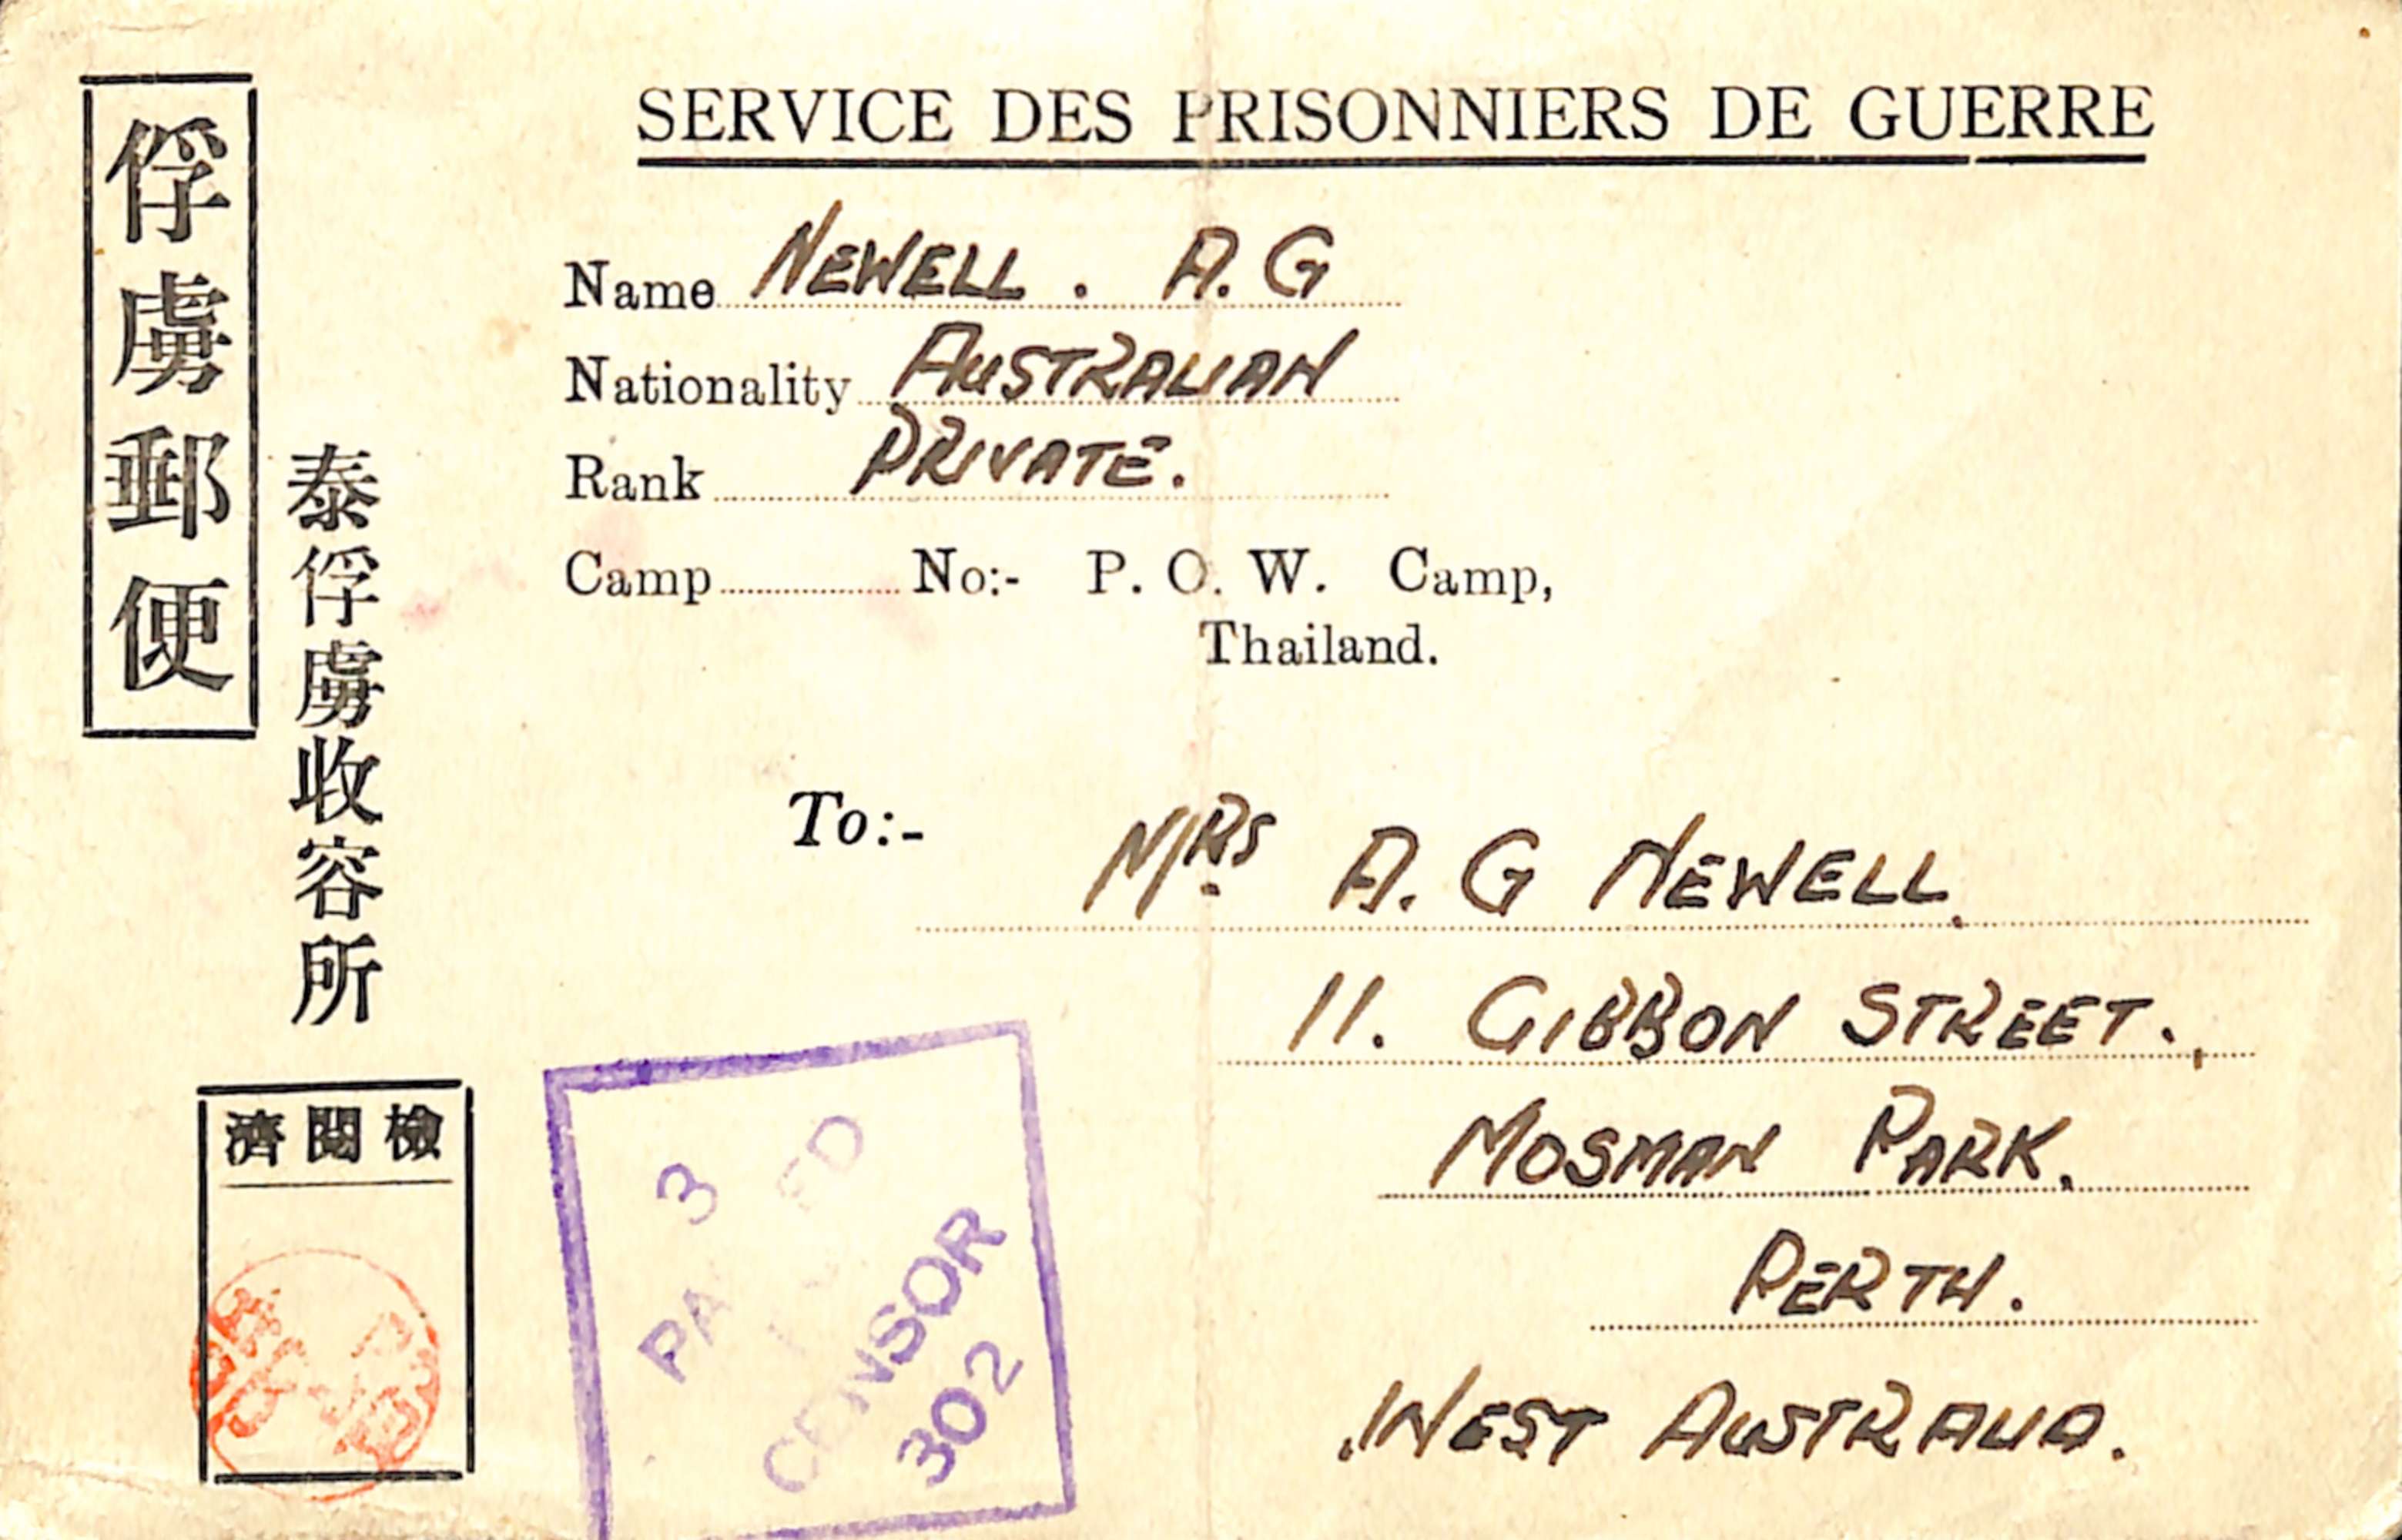 俘虜郵便
泰俘虜收容所
SERVICE DES PRISONNIERS DE GUERRE
Name NEWELL. A.G
Nationality AUSTRALIAN
Rank PRIVATE.
Camp No:- P. O. W. Camp,
Thailand.
To:- MRS A. G NEWELL.
11. GIBBON STREET.,
MOSMAN PARK.
PERTH.
WEST AUSTRALIA.
濟閲檢
3
CENSOR
302